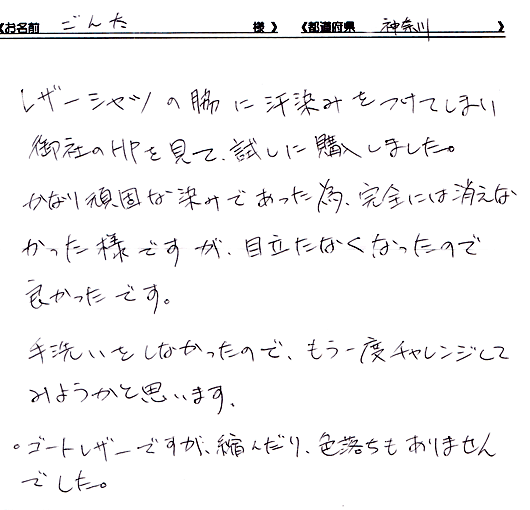 《お名前 ごんた 様》 《都道府県 神奈川 》
レザーシャツの脇に汗染みをつけてしまい
御社のHPを見て、試しに購入しました。
かなり頑固な染みであった為、完全には消えな
かった様ですが、目立たなくなったので
良かったです。
手洗いをしなかったので、もう一度チャレンジして
みようかと思います。
・ゴートレザーですが、縮んだり、色落ちもありません
でした。